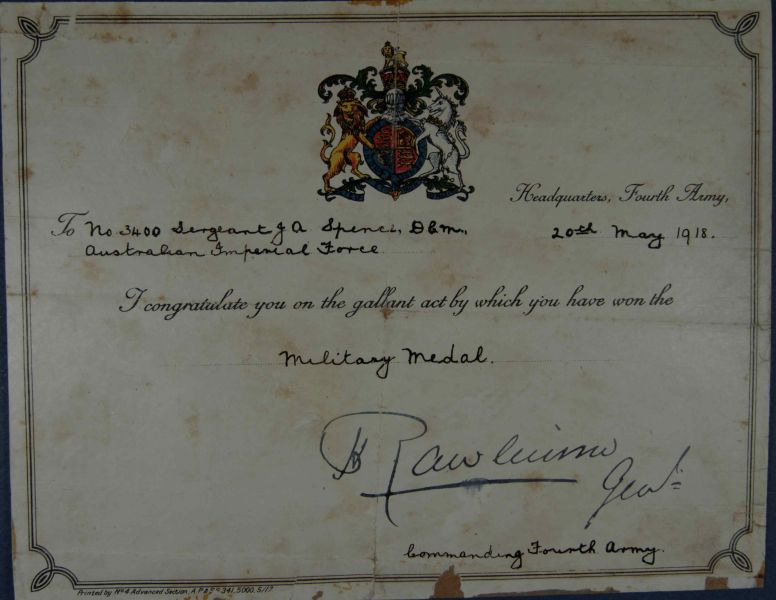 Headquarters, Fourth Army,
To No 3400 Sergeant J A Spence, D.C.M., 20th May 1918.
Australian Imperial Force.
I congratulate you on the gallant act by which you have won the
Military Medal.
H Rawlinson
Genl
Commanding Fourth Army.
Printed by No 4 Advanced Section, A.P. & S.S. 341, 5000, 5/17